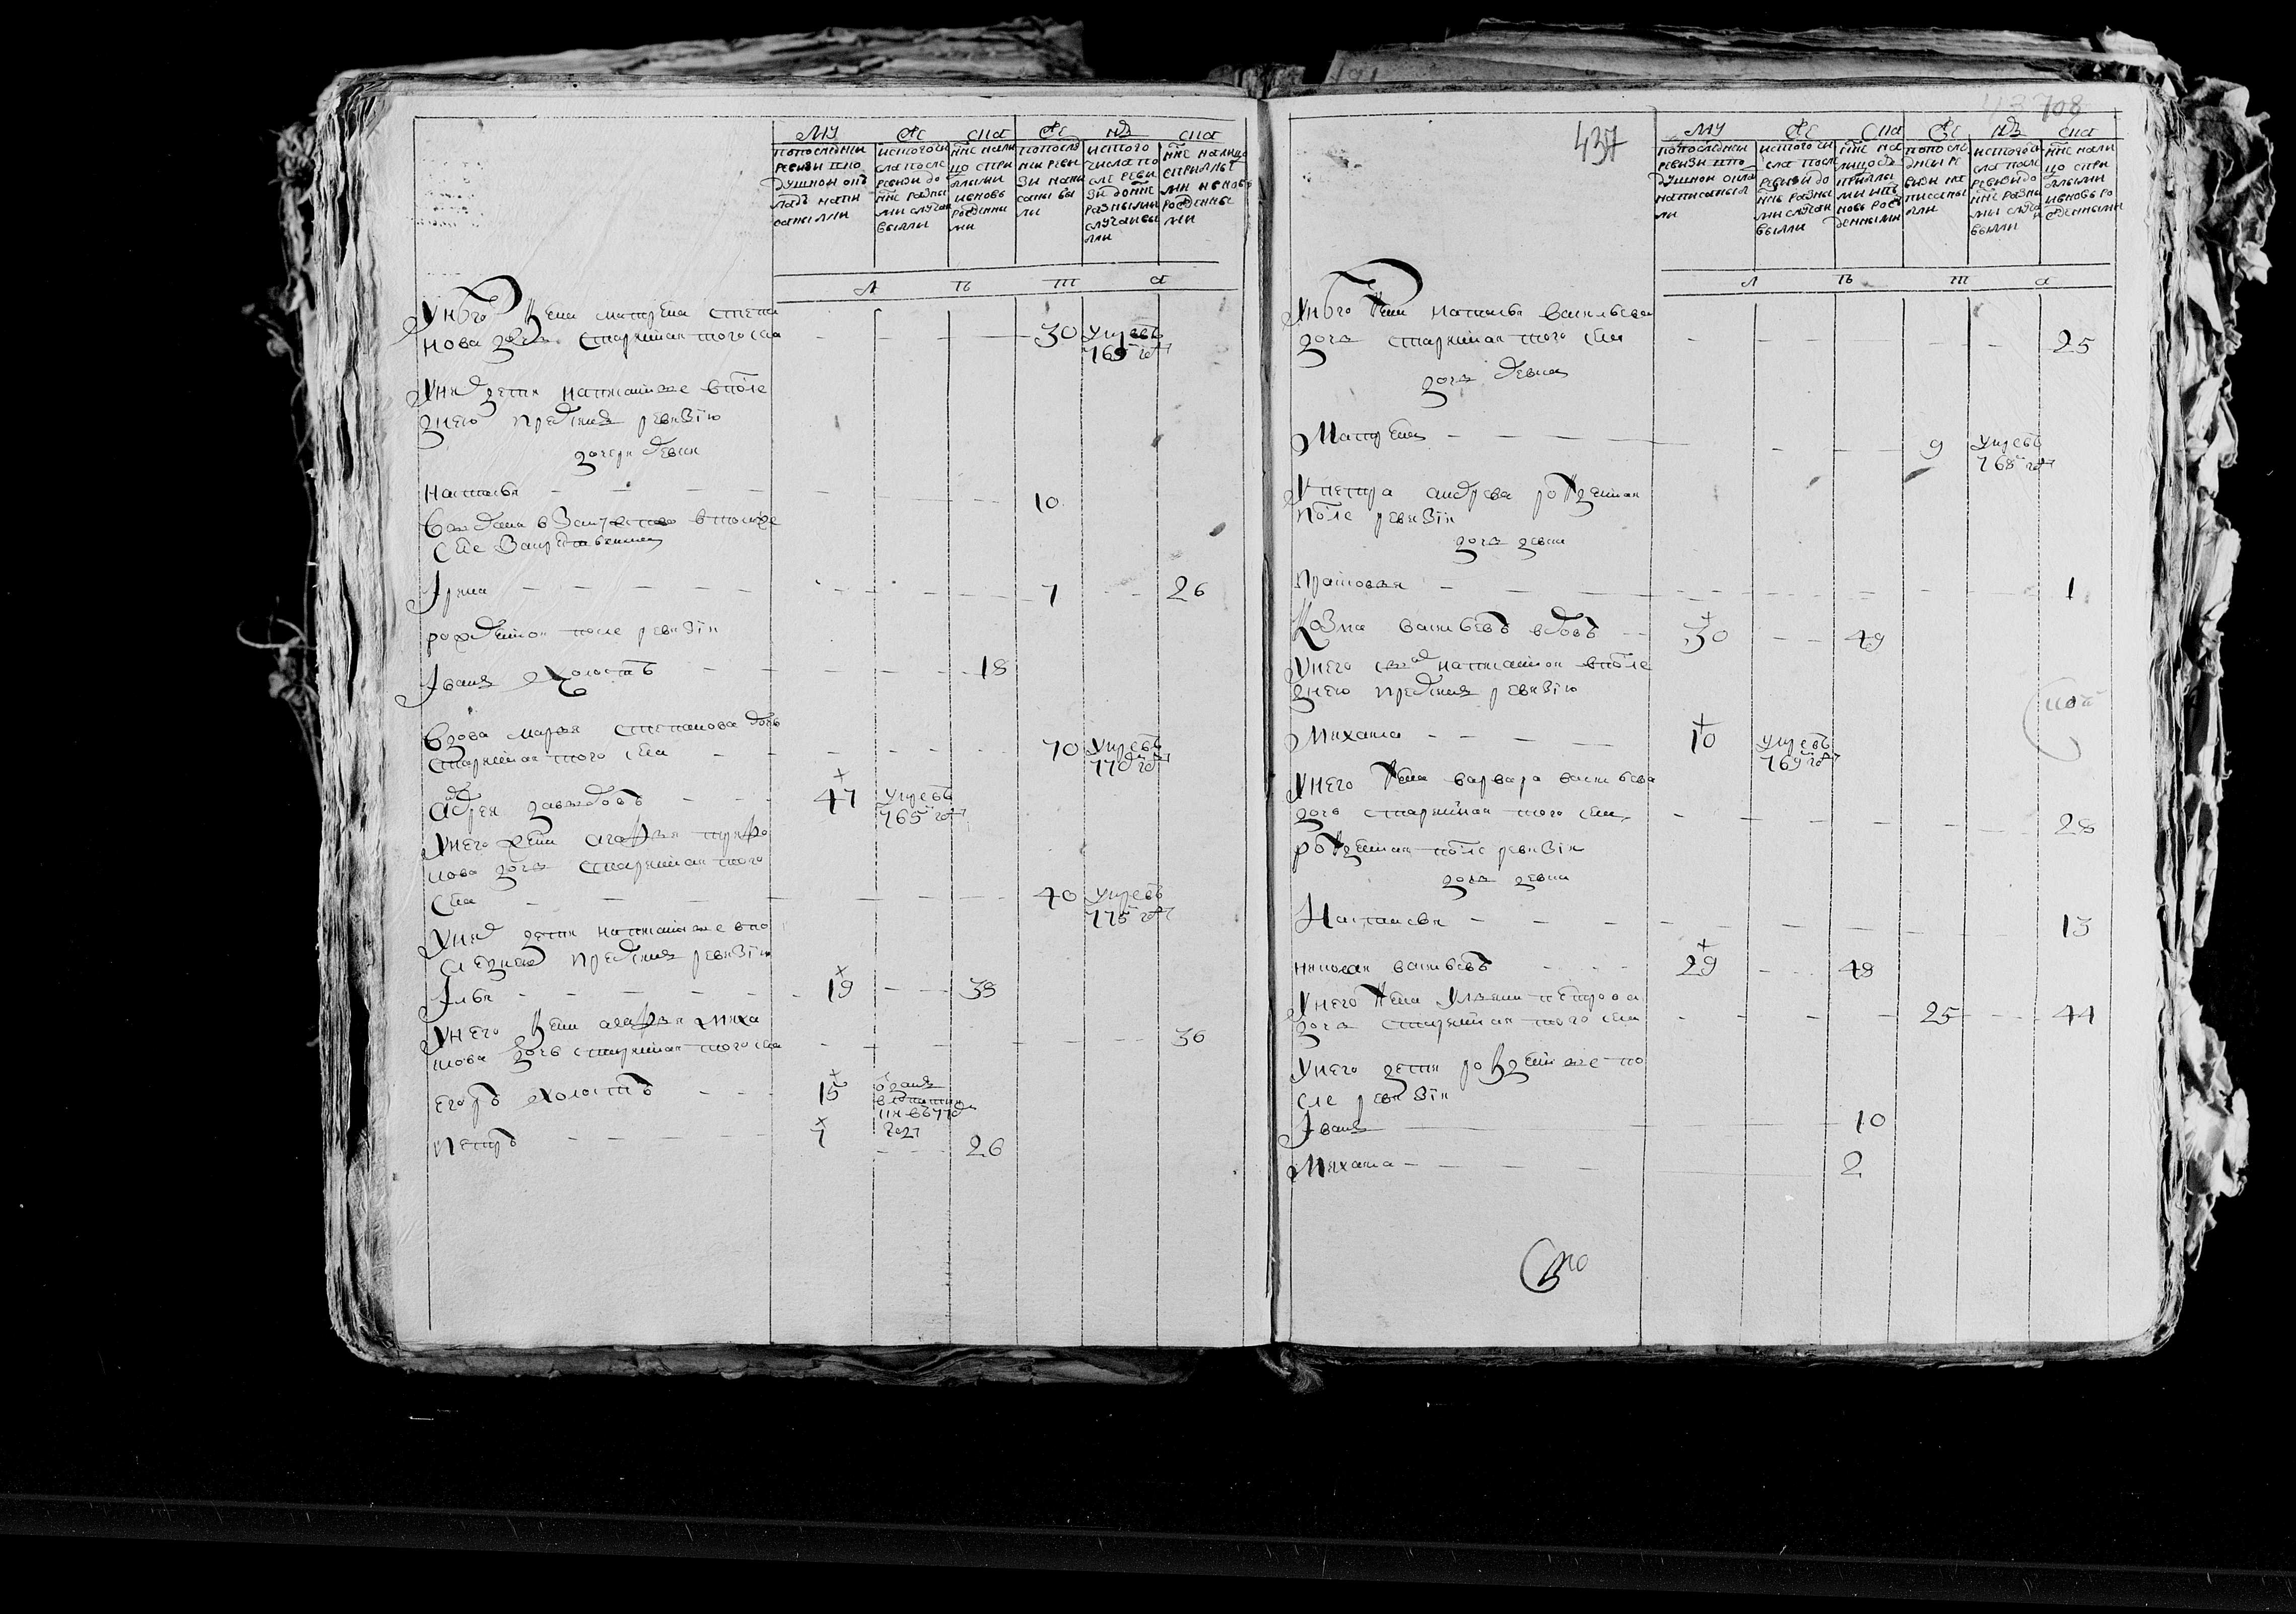 МУ ЖЕ СКА ЖЕ НЗ СКА
попоследнеи ревизи вподушнои окладъ написаныхли
исътогочисла после ревизи до нне разными случаи выбыли
нне налицо спри былыми ивновь рожденными
попоследнеи ревизи написаны были
исътого числа после ревизи до нне разными случаи выбыли
нне налицо сприбылыми иновь рожденными
Л Ѣ Т А
Унѣго жена матрена степа
нова дочь старинная того села
30 умре въ
769 году
Уних дети написанные впосле
днею пред сим ревизию
дочери девки
наталья 10
выдана в замужество втомже
селе
Ирина 7 26
рожденои после ревизии
Иванъ холостъ 18
Вдова марья степанова дочь
старинная того села 70 умре въ
770 году
Адреи давыдовъ 47 умре въ
765 году
Унего жена агафья трифо
нова дочь старинная того
села 40 умре въ
775 году
Уних дети написанные впо
следнею пред сим ревизию
Илья 19 38
Унего жена агафья
дочь старинная того села 36
егоръ холостъ 15 отданъ
въ 770
году
Петръ 7 26
437
708
МУ ЖЕ СКА ЖЕ НЗ СКА
попоследнеи ревизи вподушнои окладъ написаныхли
исътогочисла после ревизи до нне разными случаи выбыли
нне налицо сприбылыми ивновь рожденными
попоследнеи ревизи написаны были
исътогочисла после ревизи до нне разными случаи выбыли
нне налицо сприбылыми ивновь рожденными
Л Ѣ Т А
Унѣго жена наталья васильева
дочь старинная того села 25
дочь девка
Матрена 9 умре въ
768 году
У петра андреева рожденная
после ревизии
дочь девка
прасковья 1
Козма васильевъ вдовъ 30 49
Унего сын написанои впосле
днею пред сим ревизию
Михаила 10 умре въ
769 году
Унего жена варвара васильева
дочь старинная того села 28
рожденная после ревизии
дочь девка
Наталья 13
николаи васильевъ 29 48
Унего жена ульяна петрова
дочь старинная того села 25 44
Унего дети рожденные по
сле ревизии
Иванъ 10
Михаила 2